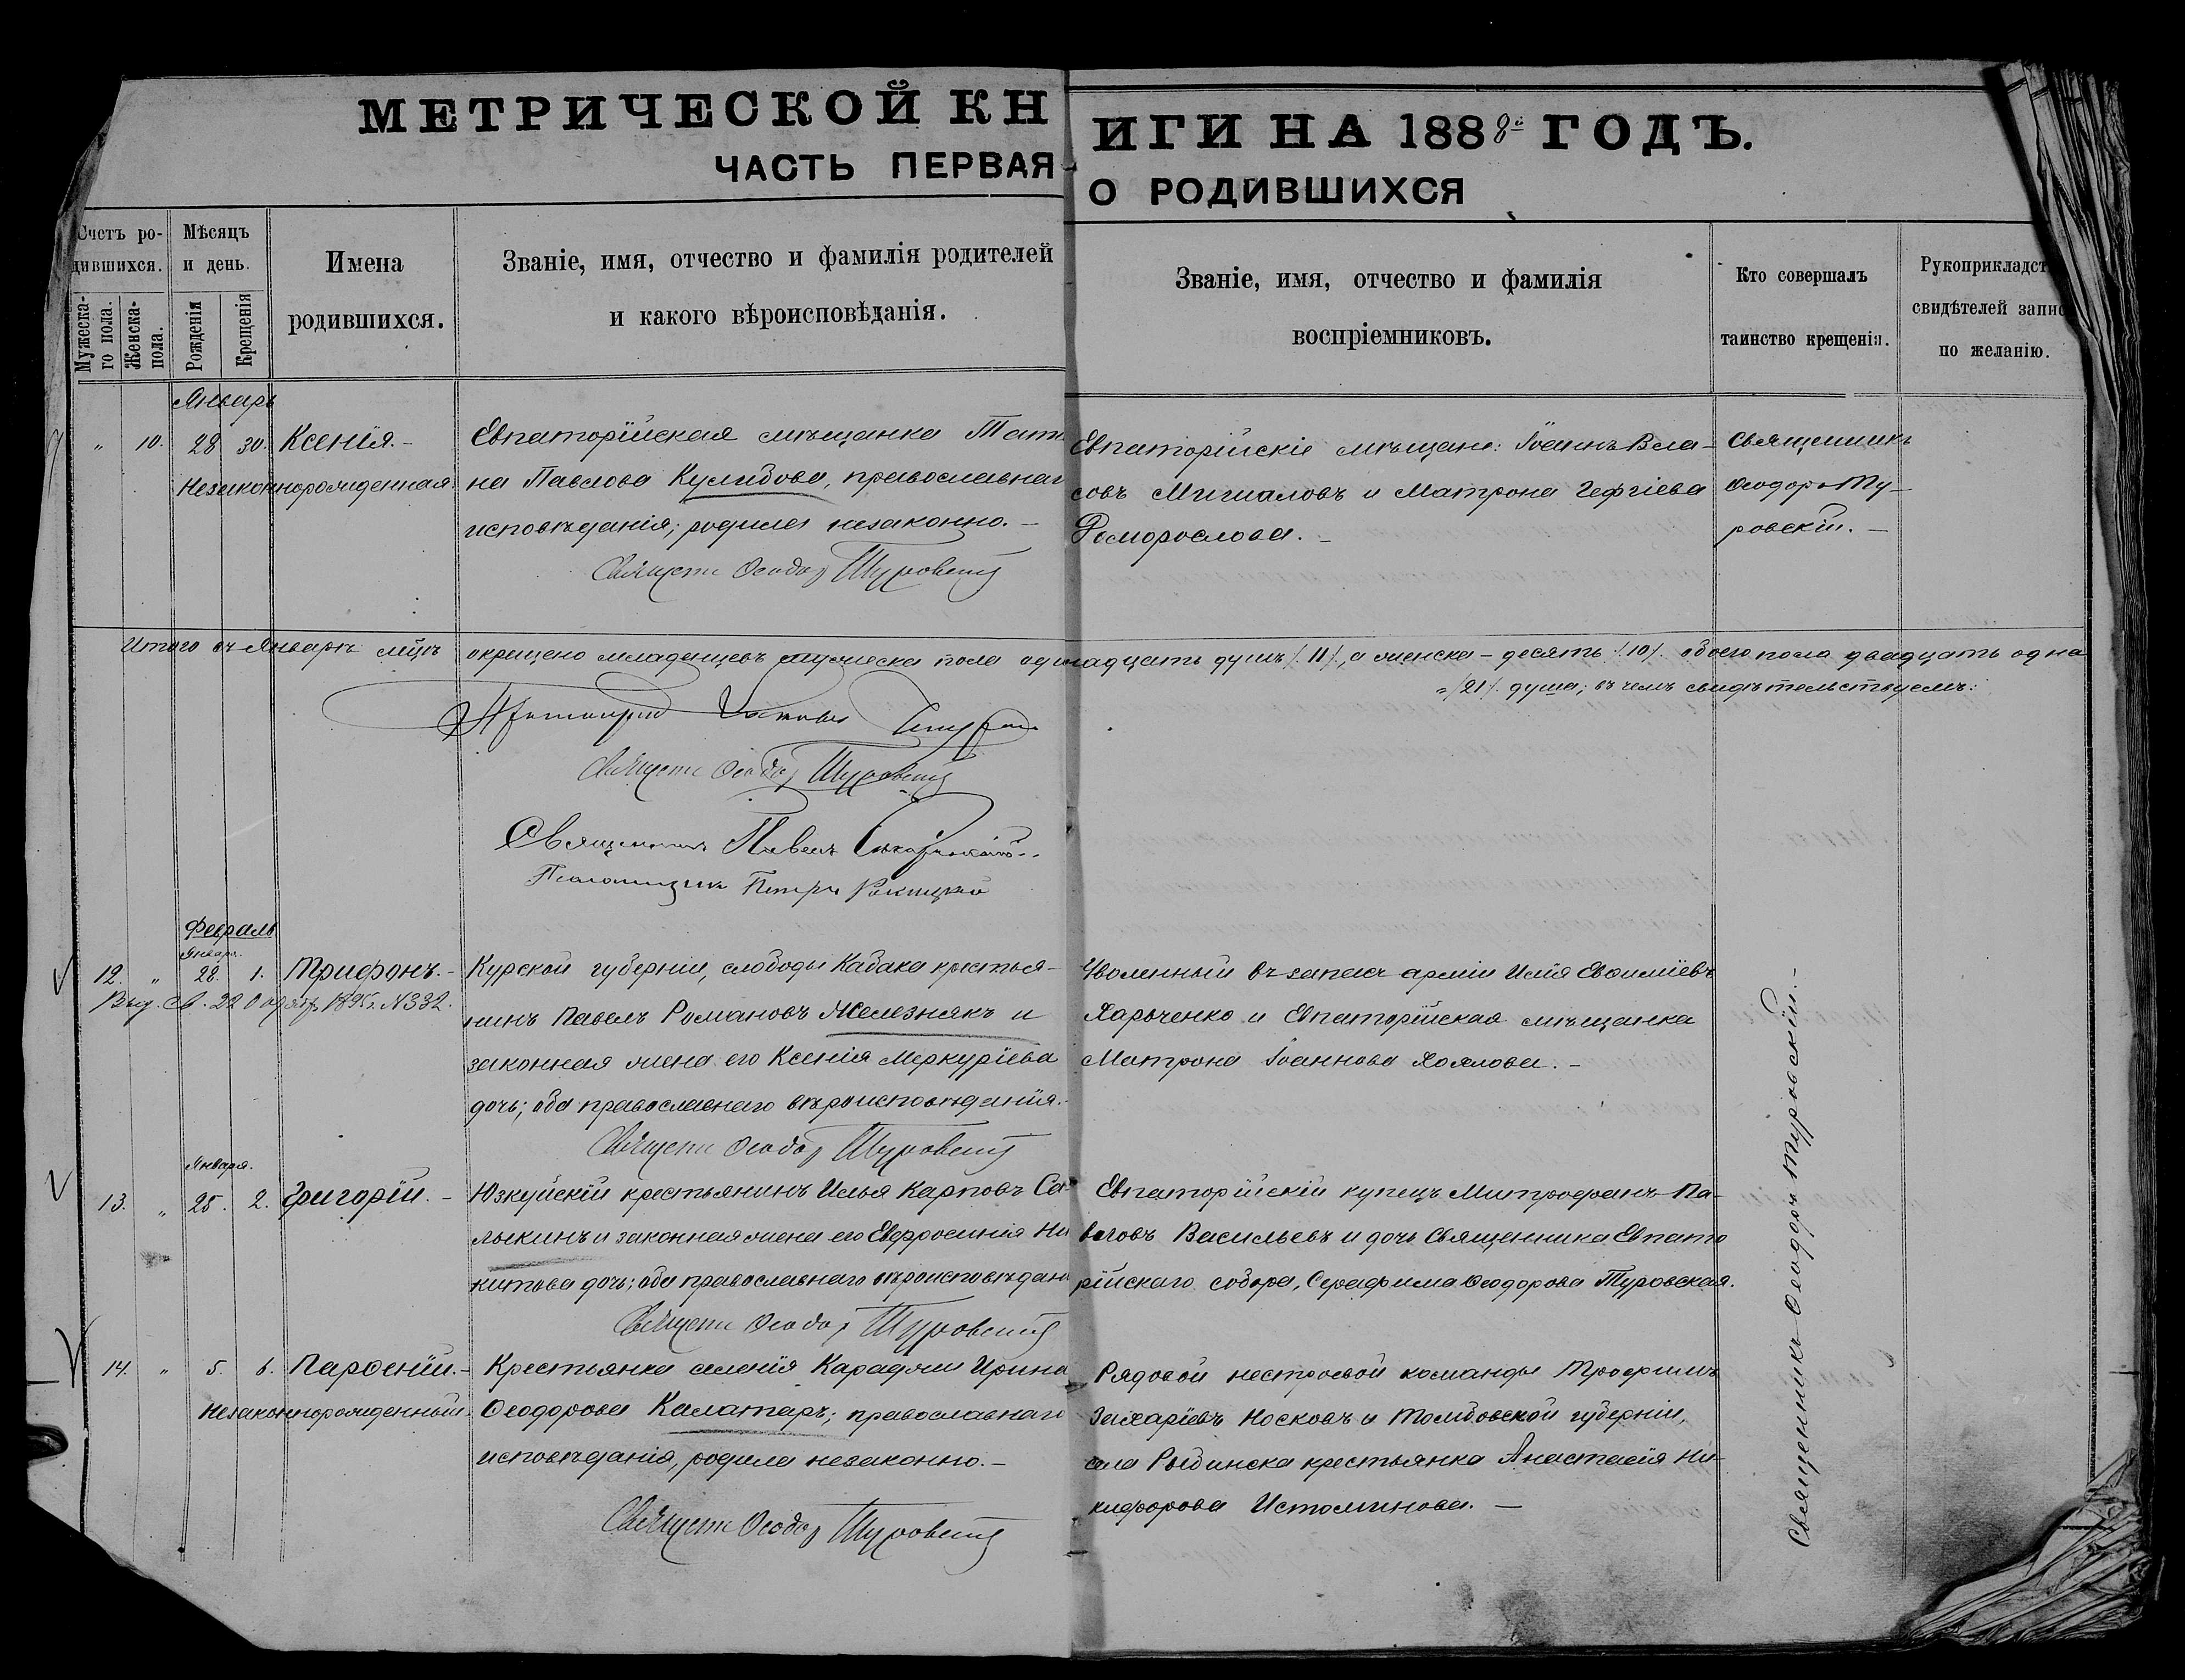 МЕТРИЧЕСКОЙ КНИГИ НА 1888й ГОДЪ.
ЧАСТЬ ПЕРВАЯ О РОДИВШИХСЯ
Счетъ родившихся.
Мужескаго пола.
Женска- пола.
Мѣсяцъ и день.
Рожденія
Крещенія
Имена
родившихся.
Званіе, имя, отчество и фамилія родителей
и какого вѣроисповѣданія.
Званіе, имя, отчество и фамилія
воспріемниковъ.
Кто совершалъ
таинство крещенія.
Рукоприкладст
свидѣтелей запис
по желанію.
Январь
" 10. 28 30. Ксенія.-
Незаконнорожденная.
Евпаторійская мѣщанка Татіа
на Павлова Кулидова, православнаг
исповѣданія; родила незаконно.-
Священ Ѳеодор Туровскій
Евпаторійскіе мѣщане: Іоаннъ Вла-
совъ и Матрона
Священникъ
Ѳеодоръ Ту-
ровскій.-
Итого въ Январѣ мцѣ окрещено младенцевъ мужеска пола одинадцать душъ /.11/., а женска - десять /.10/. обоего пола двадцать одна
=/21/. душа; въ чемъ свидѣтельствуемъ:
Протоіерей
Священ Ѳеодор Туровскій
Священникъ Павелъ
Псаломщикъ Петръ
Февраль
Января.
12. " 28. 1. Трифонъ.-
Выд. св. 22 1895 г. N 332.
Курской губерніи, слободы Кабака крестья-
нинъ Павелъ Романовъ Железнякъ и
законная жена его Ксенія Меркуріева
дочь; оба православнаго вѣроисповѣданія.-
Священ Ѳеодор Туровскій
Уволенный въ запасъ арміи Илія Евѳиміевъ
Харченко и Евпаторійская мѣщанка
Матрона Іоаннова
Января.
13. " 25. 2. Григорій.-
Юзкуйскій крестьянинъ Илья Карповъ Са-
лыкинъ и законная жена его Евфросинія Ни
китова дочь; оба православнаго вѣроисповѣдан
Священ Ѳеодор Туровскій
Евпаторійскій купецъ Митрофанъ Па-
вловъ Васильевъ и дочь Священника Евпато
рійскаго собора, Серафима Ѳеодорова Туровская.
14. " 5. 6. Парѳеній.-
Незаконнорожденный.
Крестьянка селенія Караджи Ирина
Ѳеодорова Каламаръ; православнаго
исповѣданія, родила незаконно.-
Священ Ѳеодор Туровскій
Рядовой нестроевой команды Трофимъ
Захаріевъ Носковъ и Тамбовской губерніи,
села Рыбинска крестьянка Анастасія Ни-
кифорова Истоминова.-
Священникъ Ѳеодоръ Туровскій.-